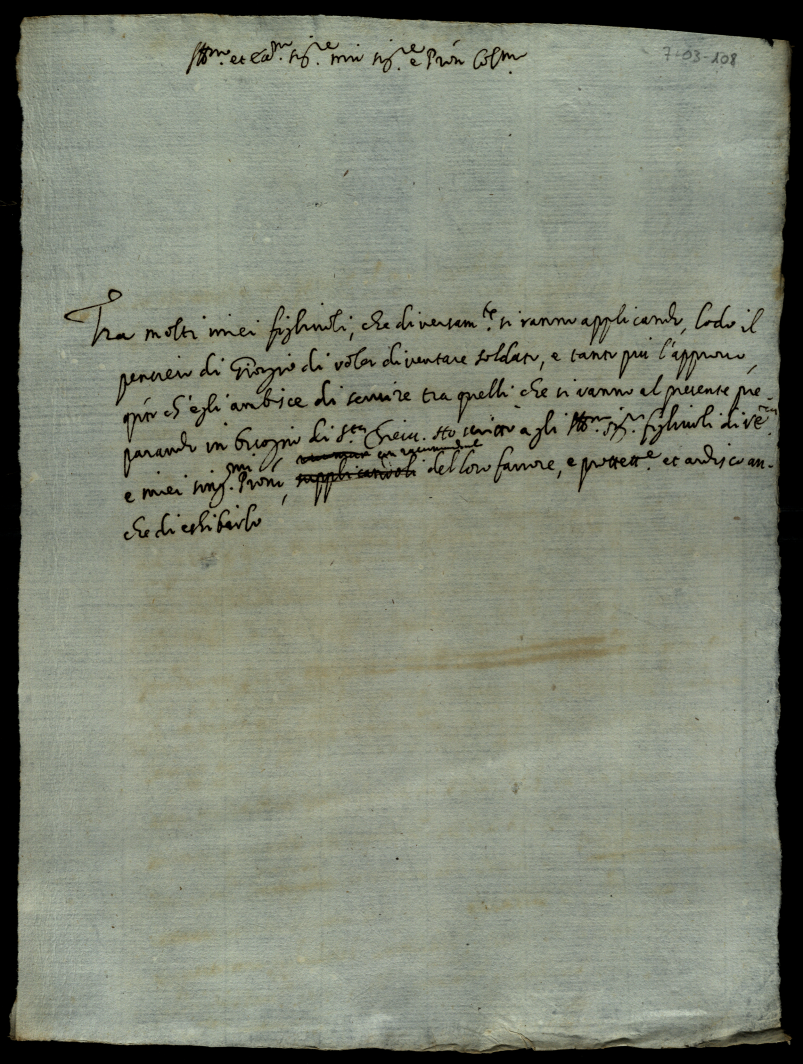 Ill.mo et Ecc.mo sig.re mio sig.re e Pron Col.mo
7-03-108
Tra molti miei figliuoli, che diversam.te si vanno applicando, lodo il
pensiero di Giorgio di voler diventare soldato, e tanto più l'approuo,
q.to ch'egli ambisce di seruire tra quelli che si vanno al presente pre-
parando in di S.ta sto scritto agli Ill.mi sig.ri figliuoli di V.E.
e miei sing.mi Proni, supplicandoli del loro fauore, e protett.e et ardisco an-
che di esibirlo